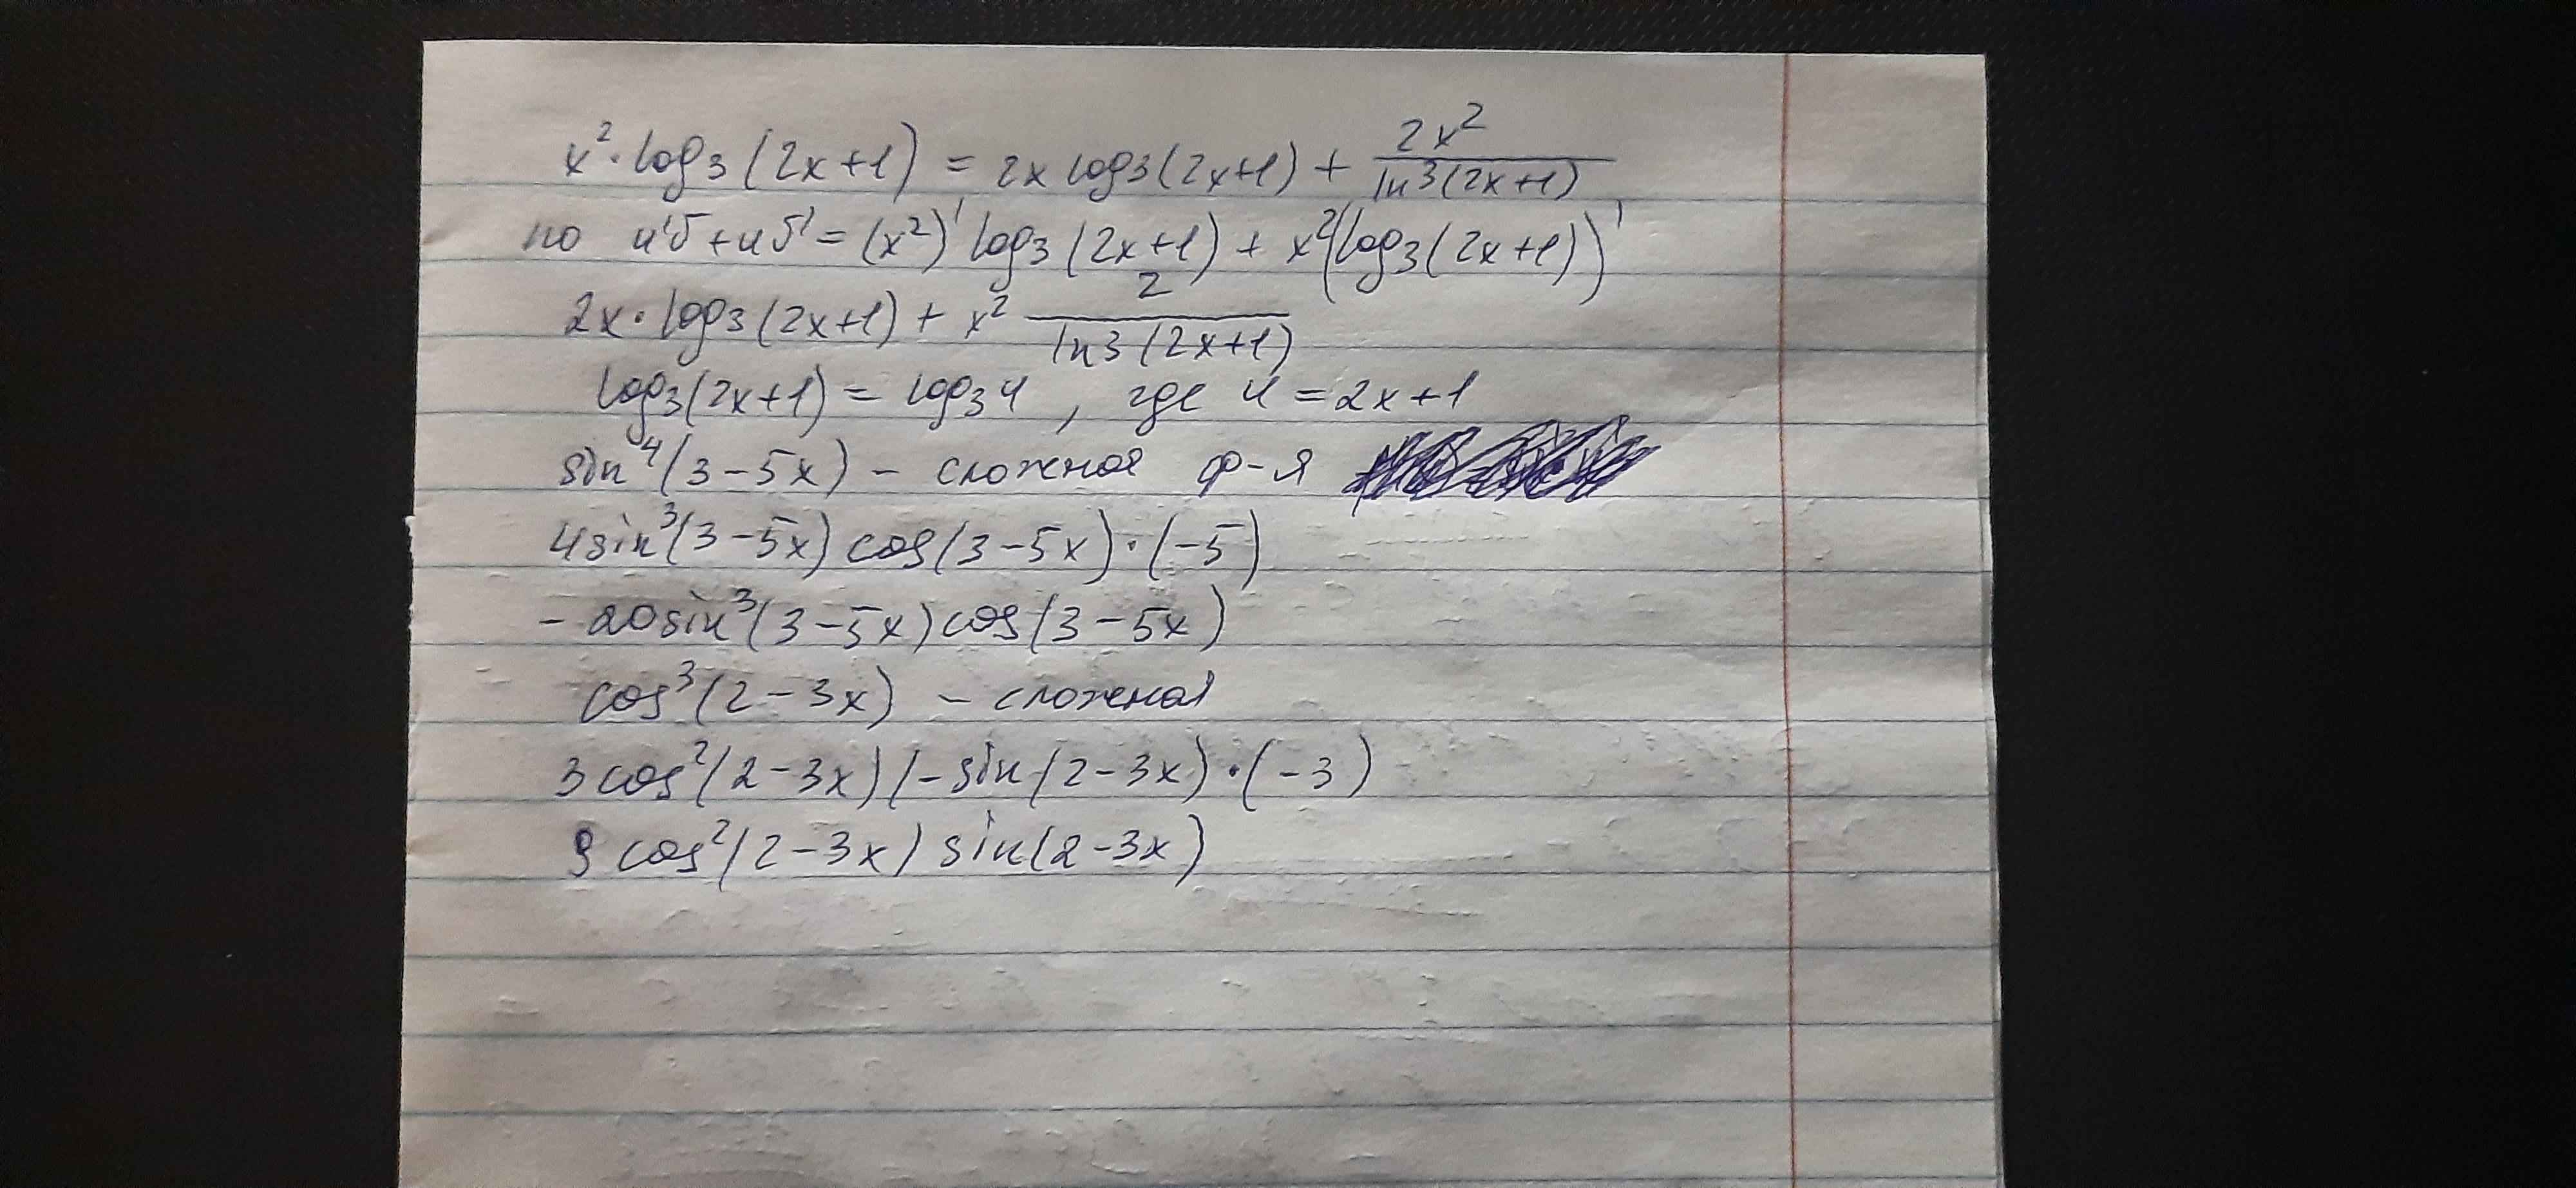 x² · log₃(2x+1) = 2x log₃(2x+1) + 2x² / ln3(2x+1)
по u'v + uv' = (x²)' log₃(2x+1) + x²(log₃(2x+1))'
2x · log₃(2x+1) + x² 2 / ln3(2x+1)
log₃(2x+1) = log₃u , где u = 2x+1
sin⁴(3-5x) - сложная ф-я
4sin³(3-5x) cos(3-5x) · (-5)
- 20sin³(3-5x) cos(3-5x)
cos³(2-3x) - сложная
3cos²(2-3x) (-sin(2-3x) · (-3)
9 cos²(2-3x) sin(2-3x)